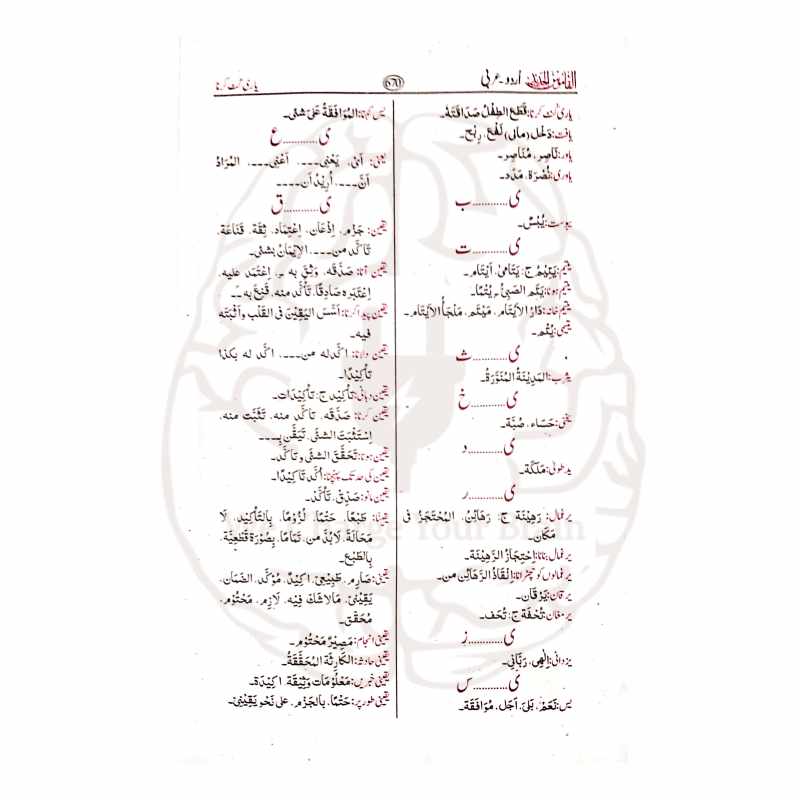 القاموس الجدید اردو - عربی
یاری کٹ کرنا
یاری کٹ کرنا: قَطَعَ الطِفْلُ صَدَاقَتَهُ۔
یافت: دَخْل (مالی) نَفْع، رِبْح۔
یاور: نَاصِر، مُنَاصِر۔
یاوری: نُصْرَة، مَدَد۔
ی............ب
یبوست: یُبْسٌ۔
ی............ت
یتیم: یَتِیْمٌ ج، یَتَامیٰ، اَیْتَام۔
یتیم ہونا: یَتِمَ الصَبِیُّ ـِ یُتْمًا۔
یتیم خانہ: دَارُ الاَیْتَام، مَیْتَم، مَلْجَأُ الاَیْتَام۔
یتیمی: یُتْم۔
ی............ث
یثرب: المَدِیْنَةُ المُنَوَّرَةُ۔
ی............خ
یخنی: حَسَاء، صُبَّة۔
ی............د
ید طولیٰ: مَلَکَة۔
ی............ر
یرغمال: رَهِیْنَة ج: رَهَائِنُ، المُحْتَجَزُ فی
مَکَان۔
یرغمال بنانا: اِحْتِجَازُ الرَّهِیْنَة۔
یرغمالوں کو چھڑانا: اِنْقَاذُ الرَهَائِن من۔
یرقان: یَرْقَان۔
یرمغان: تُحْفَة ج: تُحَف۔
ی............ز
یزدانی: اِلٰهِی، رَبَّانِی۔
ی............س
یس: نَعَمْ، بَلیٰ، اَجَل، مُوَافَقَة۔
یس کہنا: المُوَافَقَةُ عَلیٰ شئی۔
ی............ع
یعنی: اَیْ، یَعْنِی...، اَعْنِی...، المُرَادُ
اَنَّ...، اُرِیْدُ اَن....
ی............ق
یقین: جَزْم، اِذْعَان، اِعْتِمَاد، ثِقَة، قَنَاعَة،
تَأَکُّد من...، الاِیْمَانُ بشئی۔
یقین آنا: صَدَّقَه، وَثِقَ به ـِ، اِعْتَمَدَ علیه،
اِعْتَبَره صَادِقًا، تَأَکَّدَ منه، قَنِعَ به ـَ۔
یقین پیدا کرنا: اَسَّسَ الیَقِیْنَ فی القَلْب واَثْبَتَه
فیه۔
یقین دلانا: اَکَّدَ له من...، اَکَّدَ له بکذا
تَأکِیْدًا۔
یقین دہانی: تَأکِید ج: تأکِیْدَات۔
یقین کرنا: صَدَّقَه، تَأکَّدَ منه، تَثَبَّتَ منه،
اِسْتَثْبَتَ الشئیَ، تَیَقَّنَ بِ...
یقین ہونا: تَحَقَّقَ الشئی وَتأکَّد۔
یقین کی حد تک پہنچنا: اُکِّدَ تَاکِیْدًا۔
یقین مانو: صَدِّقْ، تَأکَّدْ۔
یقینًا: طَبْعًا، حَتْمًا، لُزُوْمًا، بِالتَأکِیْدِ، لَا
مَحَالَةَ، لاَبُدَّ من، تَمَامًا، بِصُوْرَة قَطْعِیَّة،
بِالطَبْع۔
یقینی: صَارِم، طَبِیْعِیّ، اَکِیْدٌ، مُؤَکَّد، الضَمَان،
یَقِیْنِیٌ، مَالاشَكَ فِیْه، لاَزِم، مَحْتُوْم،
مُحَقَّق۔
یقینی انجام: مَصِیْرٌ مَحْتُوْم۔
یقینی حادثہ: الکَارِثَة المُحَقَّقَةُ۔
یقینی خبریں: مَعْلُوْمَات وَثِیْقَة، اَکِیْدَة۔
یقینی طور پر: حَتْمًا، بِالجَزْم، علی نَحْوٍ یَقِیْنِیٌ۔
Change Your Brain